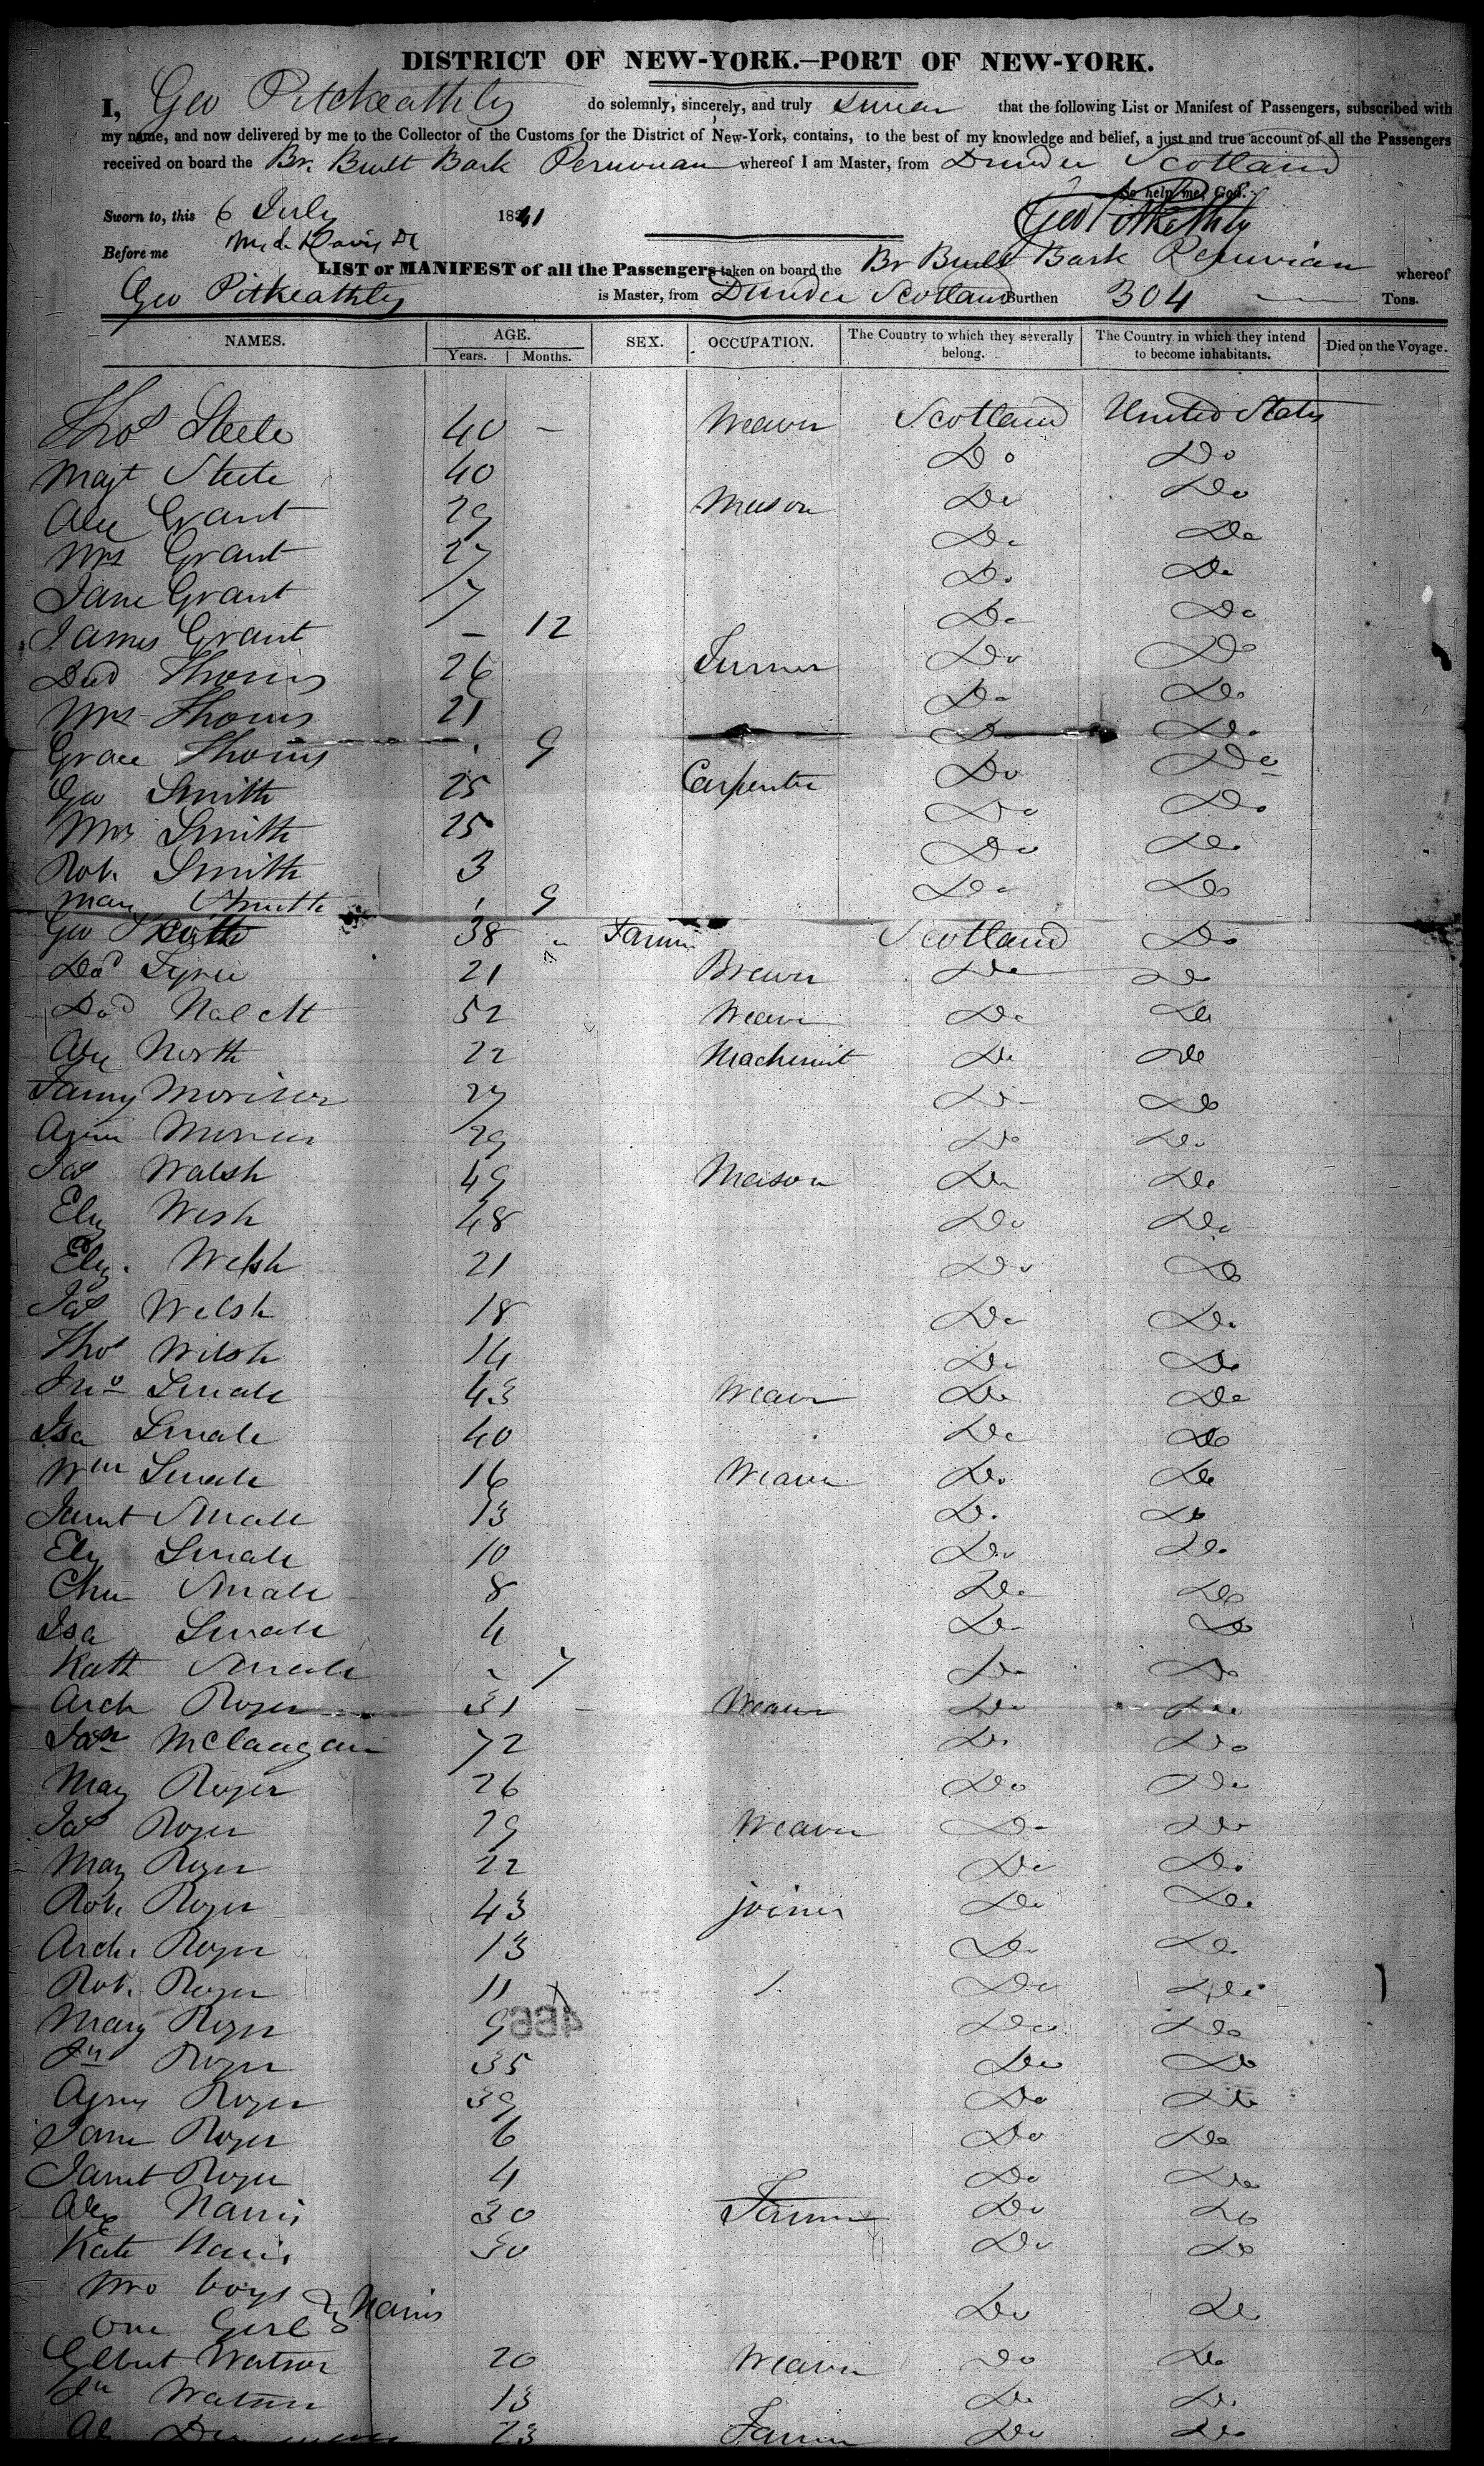 DISTRICT OF NEW-YORK.—PORT OF NEW-YORK.
I, Geo Pitkeathly do solemnly, sincerely, and truly swear that the following List or Manifest of Passengers, subscribed with
my name, and now delivered by me to the Collector of the Customs for the District of New-York, contains, to the best of my knowledge and belief, a just and true account of all the Passengers
received on board the Br. Built Bark Peruvian whereof I am Master, from Dundee Scotland
So help me God.
Sworn to, this 6 July 1841 Geo Pitkeathly
Before me
LIST or MANIFEST of all the Passengers taken on board the Br Built Bark Peruvian whereof
Geo Pitkeathly is Master, from Dundee Scotland Burthen 304 Tons.
NAMES. AGE. Years. Months. SEX. OCCUPATION. The Country to which they severally belong. The Country in which they intend to become inhabitants. Died on the Voyage.
Thos Steele 40 – Weaver Scotland United States
Magt Steele 40 Do Do
Alex Grant 29 Mason Do Do
Mrs Grant 27 Do Do
Jane Grant 7 Do Do
James Grant – 12 Do Do
Dad Thoms 26 Turner Do Do
Mrs Thoms 21 Do Do
Grace Thoms 9 Do Do
Geo Smith 25 Carpenter Do Do
Mrs Smith 25 Do Do
Rob. Smith 3 Do Do
Mary Smith 9 Do Do
Geo 38 Farmer Scotland Do
Dad Fyrie 21 Brewer Do Do
Dad 52 Weaver Do Do
Alex North 22 Machinist Do Do
Fanny Morison 27 Do Do
29 Do Do
Jas Walsh 49 Mason Do Do
Eliz Wesh 48 Do Do
Eliz. Welsh 21 Do Do
Jas Welsh 18 Do Do
Thos Welsh 14 Do Do
Jno Smale 43 Weaver Do Do
Isa Smale 40 Do Do
Wm Smale 16 Weaver Do Do
Janet Smale 13 Do Do
Eliz Smale 10 Do Do
Chn Smale 8 Do Do
Isa Smale 4 Do Do
Kath Smale – 7 Do Do
Arch Roger 31 – Weaver Do Do
McLaagan 72 Do Do
May Roger 26 Do Do
Jas Roger 29 Weaver Do Do
May Roger 22 Do Do
Rob. Roger 43 joiner Do Do
Arch. Roger 13 Do Do
Rob. Roger 11 Do Do
Mary Roger 9 Do Do
466
Jn Roger 35 Do Do
Agnes Roger 39 Do Do
Jane Roger 6 Do Do
Janet Roger 4 Do Do
Alex Harris 30 Farmer Do Do
Kate Harris 30 Do Do
Two boys & Harris Do Do
One Girl
Gilbert Watson 20 Weaver Do Do
Jn Watson 13 Do Do
23 Farmer Do Do